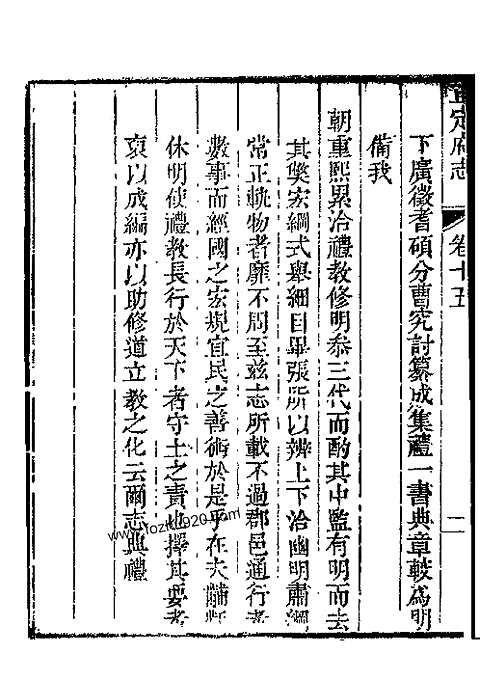 正定府志 卷十五 二
下廣徵耆碩分曹究討纂成集禮一書典章較為明
備我
朝重熙累洽禮教修明叅三代而酌其中監有明而去
其獘宏綱式舉細目畢張所以辨上下洽幽明肅綱
常正軌物者靡不周至兹志所載不過郡邑通行者
數事而經國之宏規宜民之善術於是乎在夫黼
休明使禮教長行於天下者守土之責也擇其要者
裒以成編亦以助修道立教之化云爾志典禮
www.fozhu920.com